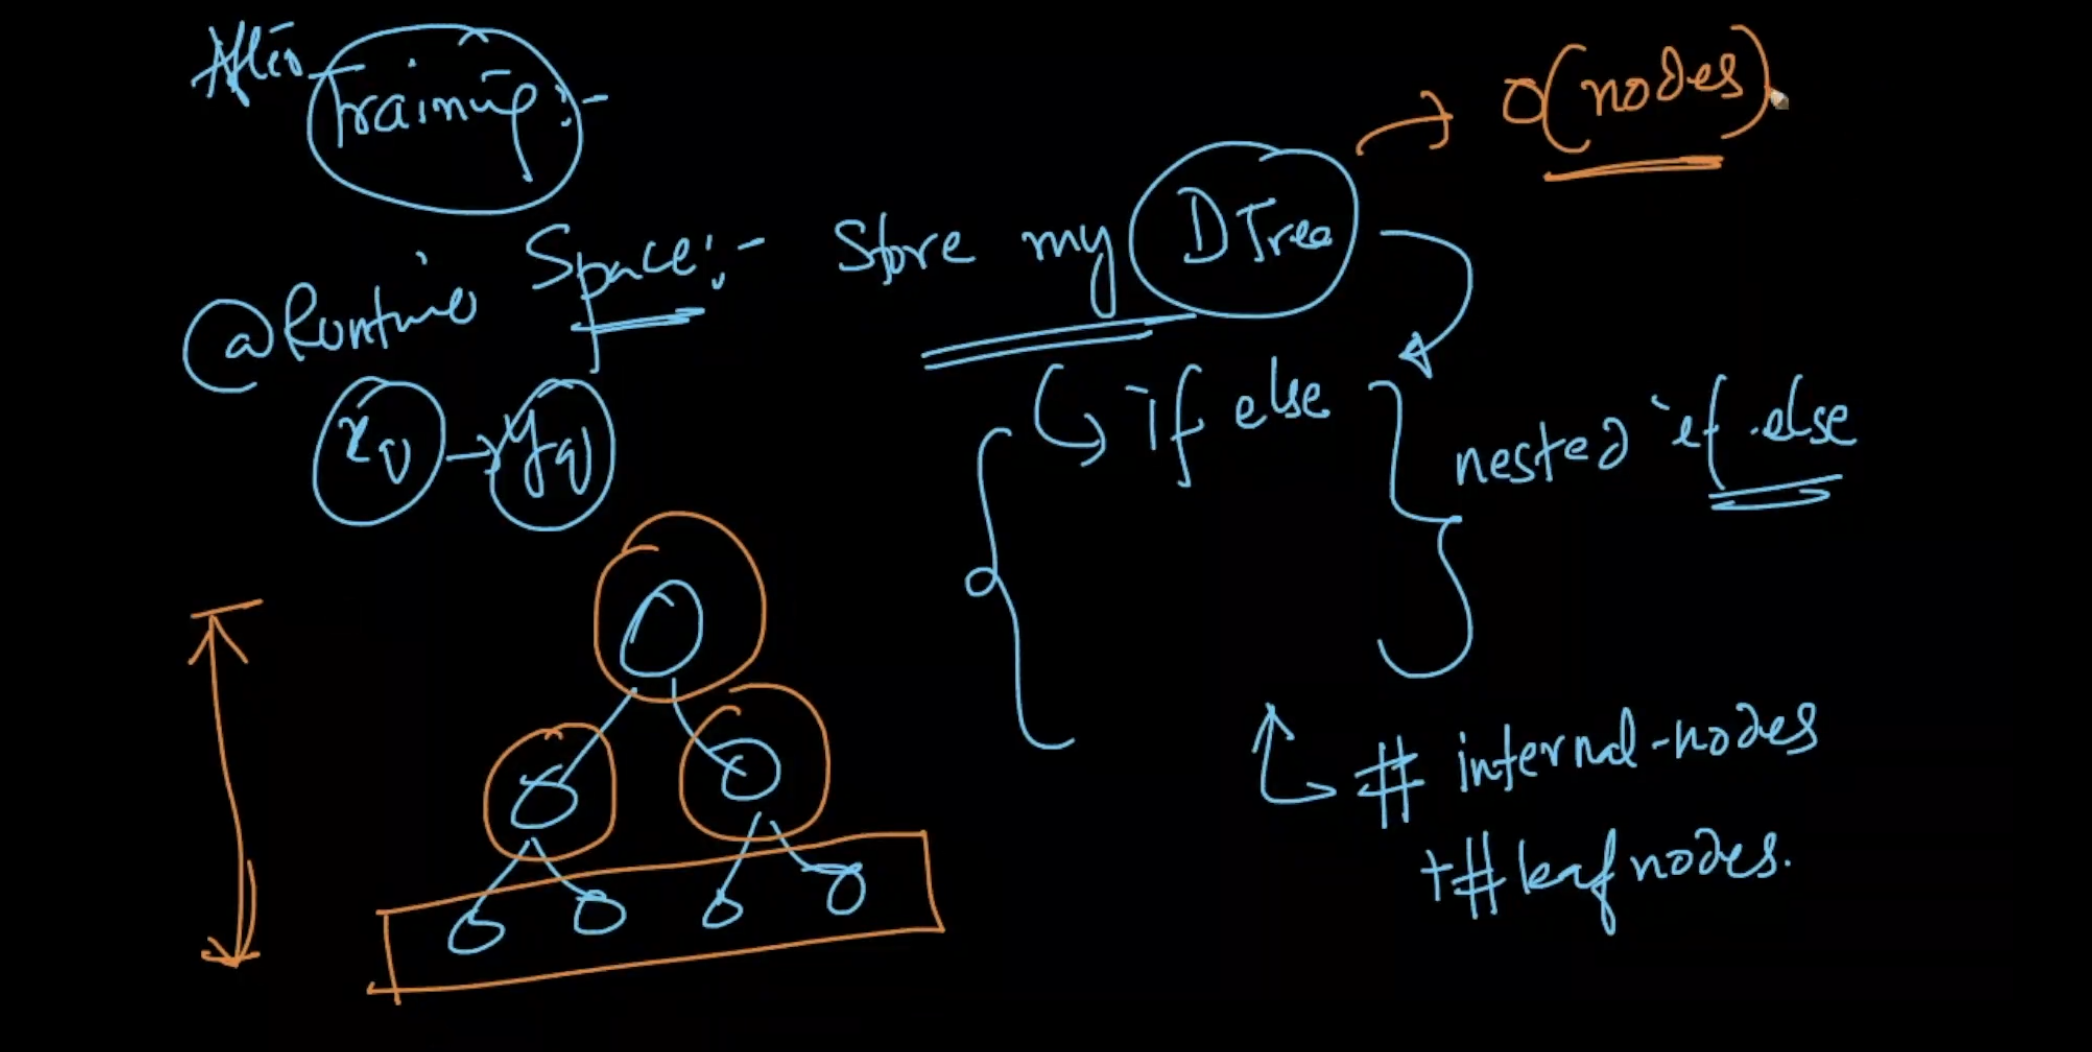 After Training:-
O(nodes)
@Runtime Space:- Store my DTree
xq → yq
if else
nested if else
# internal-nodes
+ # leaf nodes.